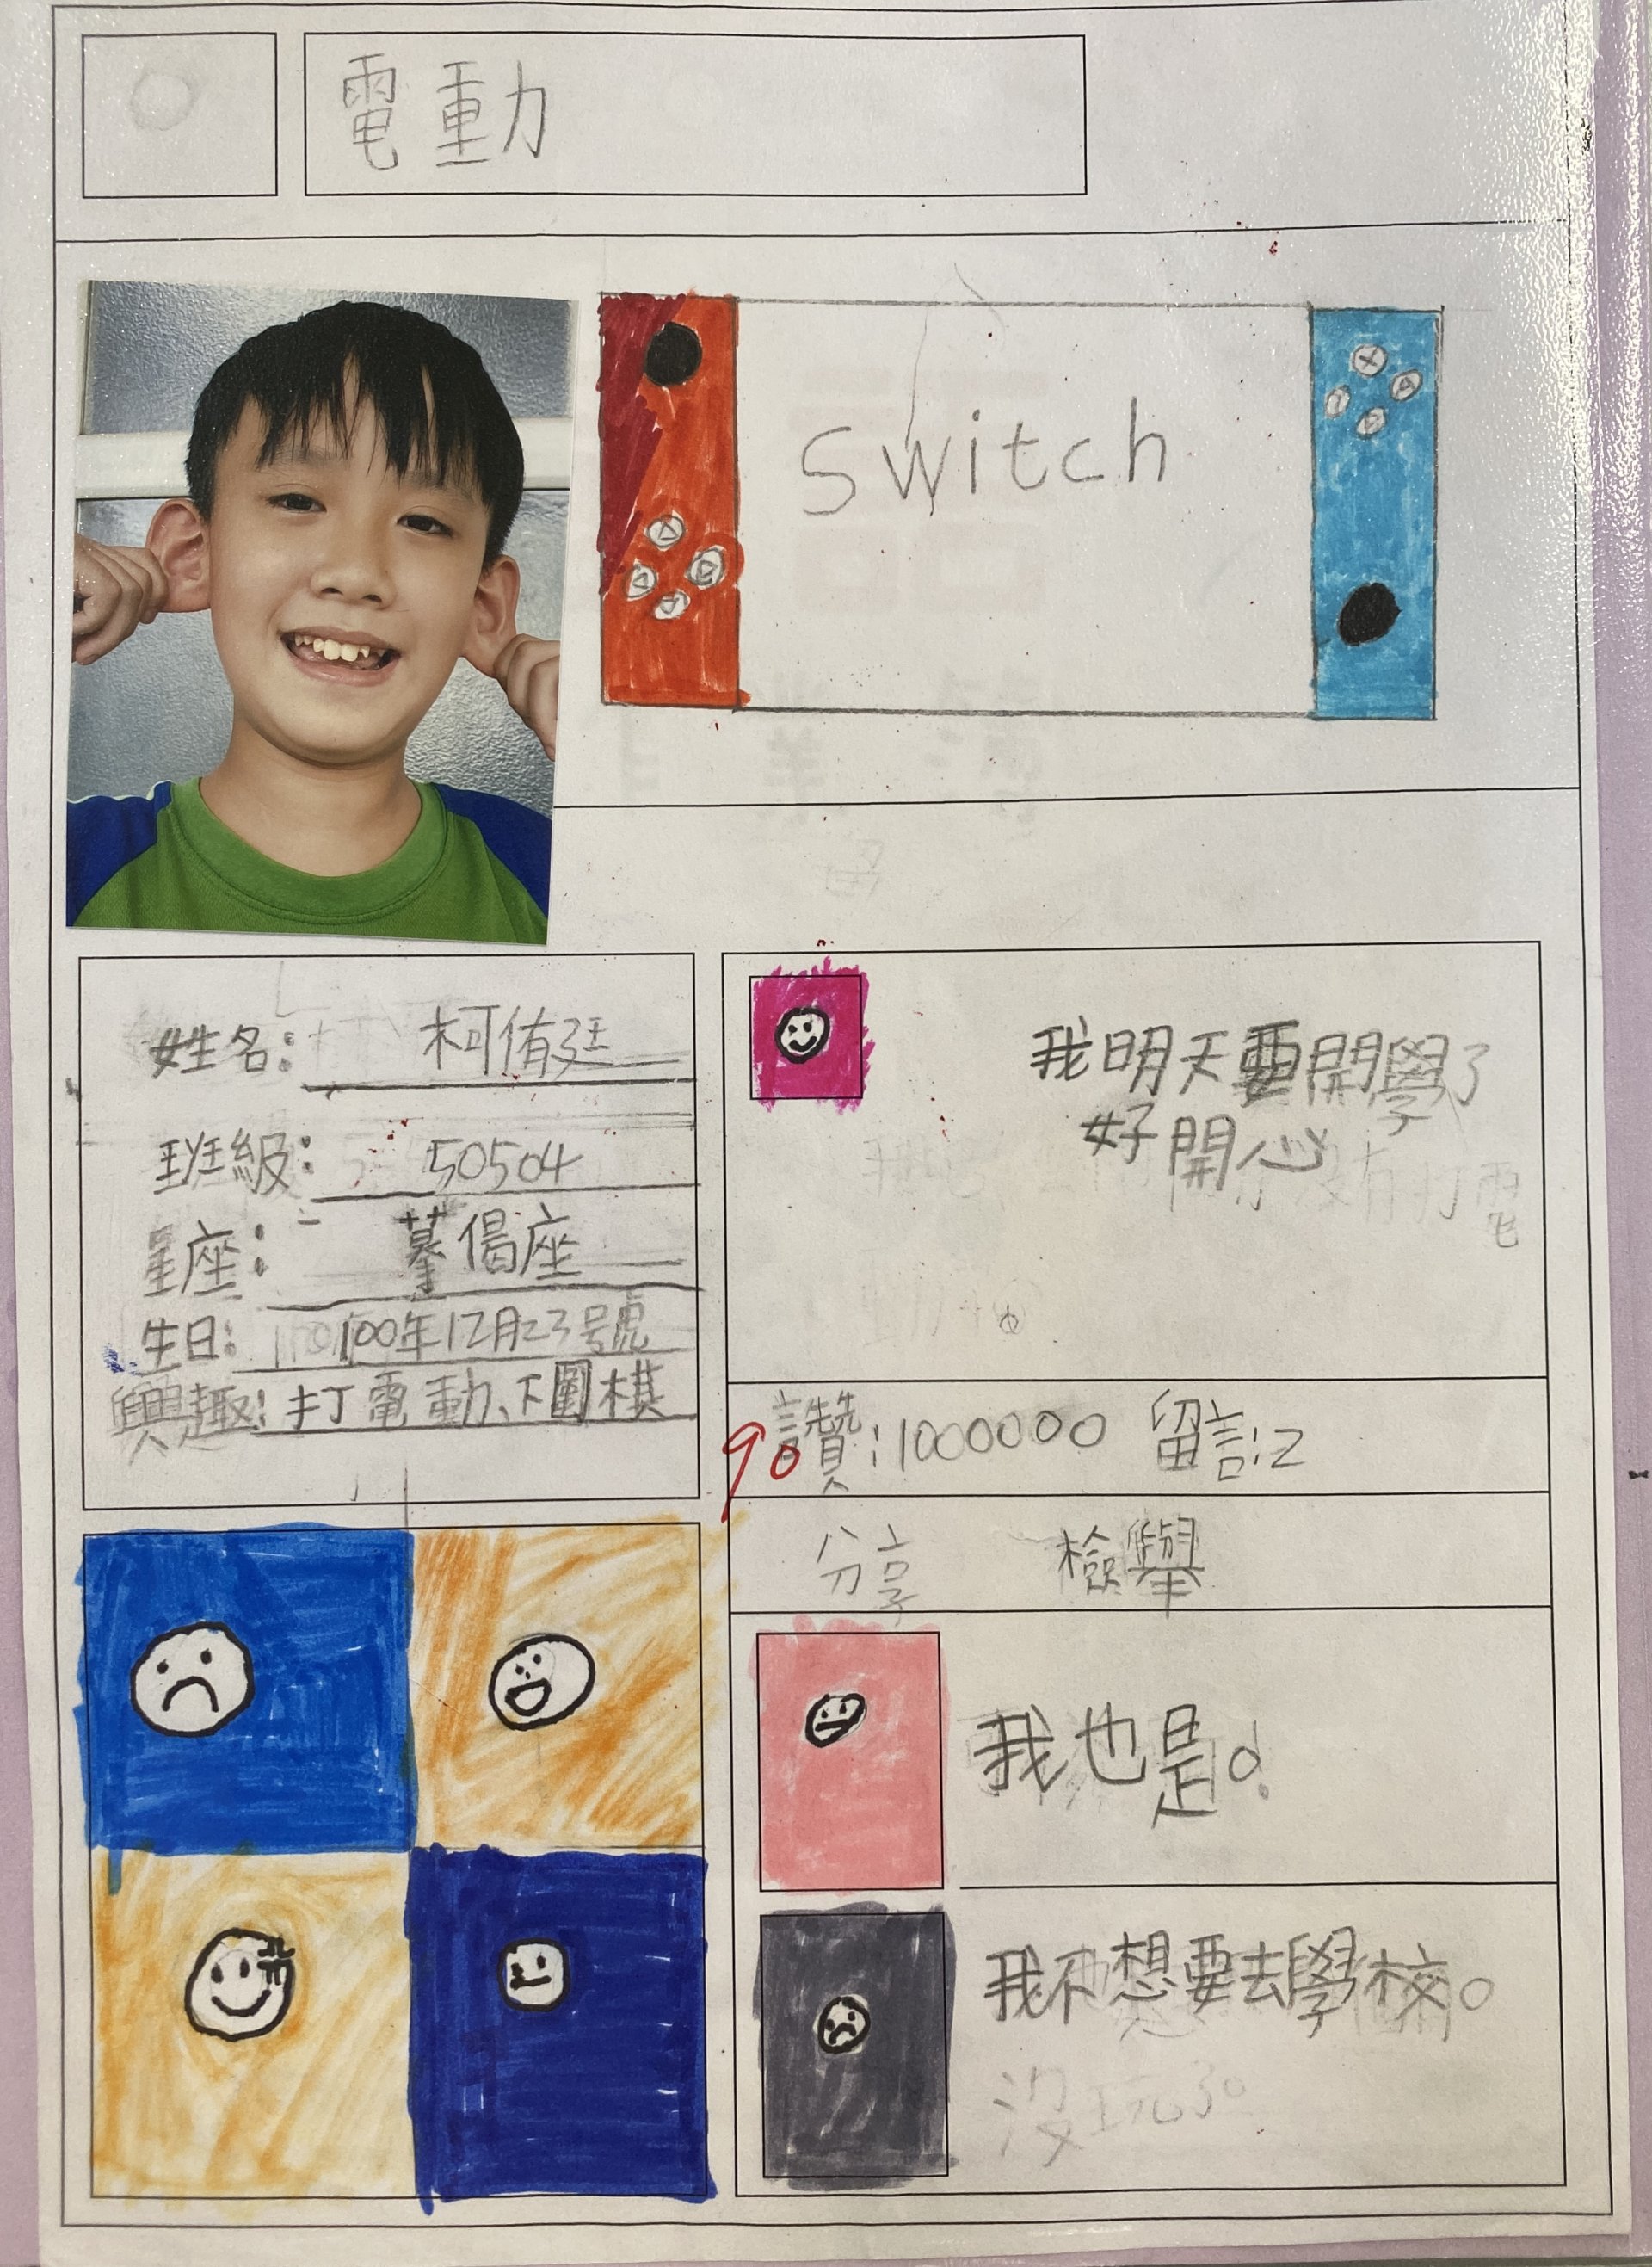 電動
Switch
姓名：柯侑廷
班級：50504
星座：摹偈座
生日：100年12月23号號
興趣：打電動、下圍棋
我明天要開學了
好開心
90
讚：1000000 留言：2
分享 檢舉
我也是。
我不想要去學校。
沒玩了。